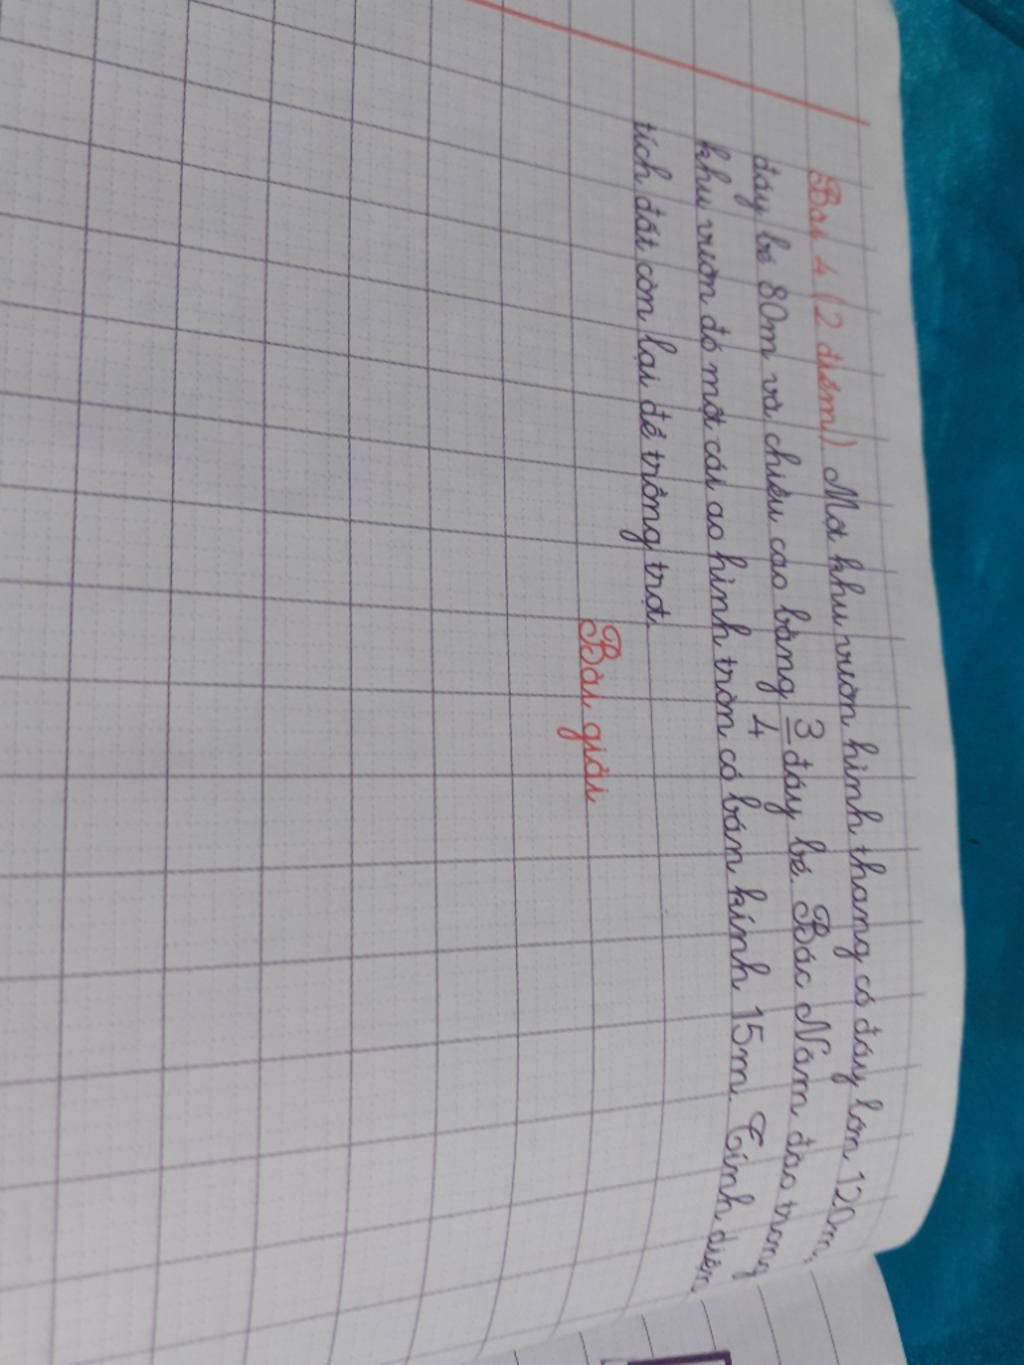 Bài 4 (2 điểm) Một khu vườn hình thang có đáy lớn 120m,
đáy bé 80m và chiều cao bằng 3/4 đáy bé. Bác Năm đào trong
khu vườn đó một cái ao hình tròn có bán kính 15m. Tính diện
tích đất còn lại để trồng trọt.
Bài giải